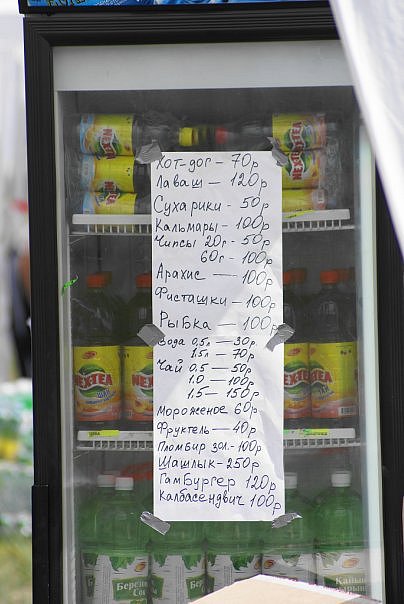 Хот-дог - 70р
Лаваш - 120р
Сухарики - 50р
Кальмары - 100р
Чипсы 20г - 50р
60г - 100р
Арахис - 100р
Фисташки - 100р
Рыбка - 100р
Вода 0,5л - 30р
1.5л - 70р
Чай 0,5 - 50р
1.0 - 100р
1.5 - 150р
Мороженое 60р
Фруктель - 40р
Пломбир зол. - 100р
Шашлык - 250р
Гамбургер 120р
Калбасендвич 100р
NEXTEA
NEXTEA
NEXTEA
NEXTEA